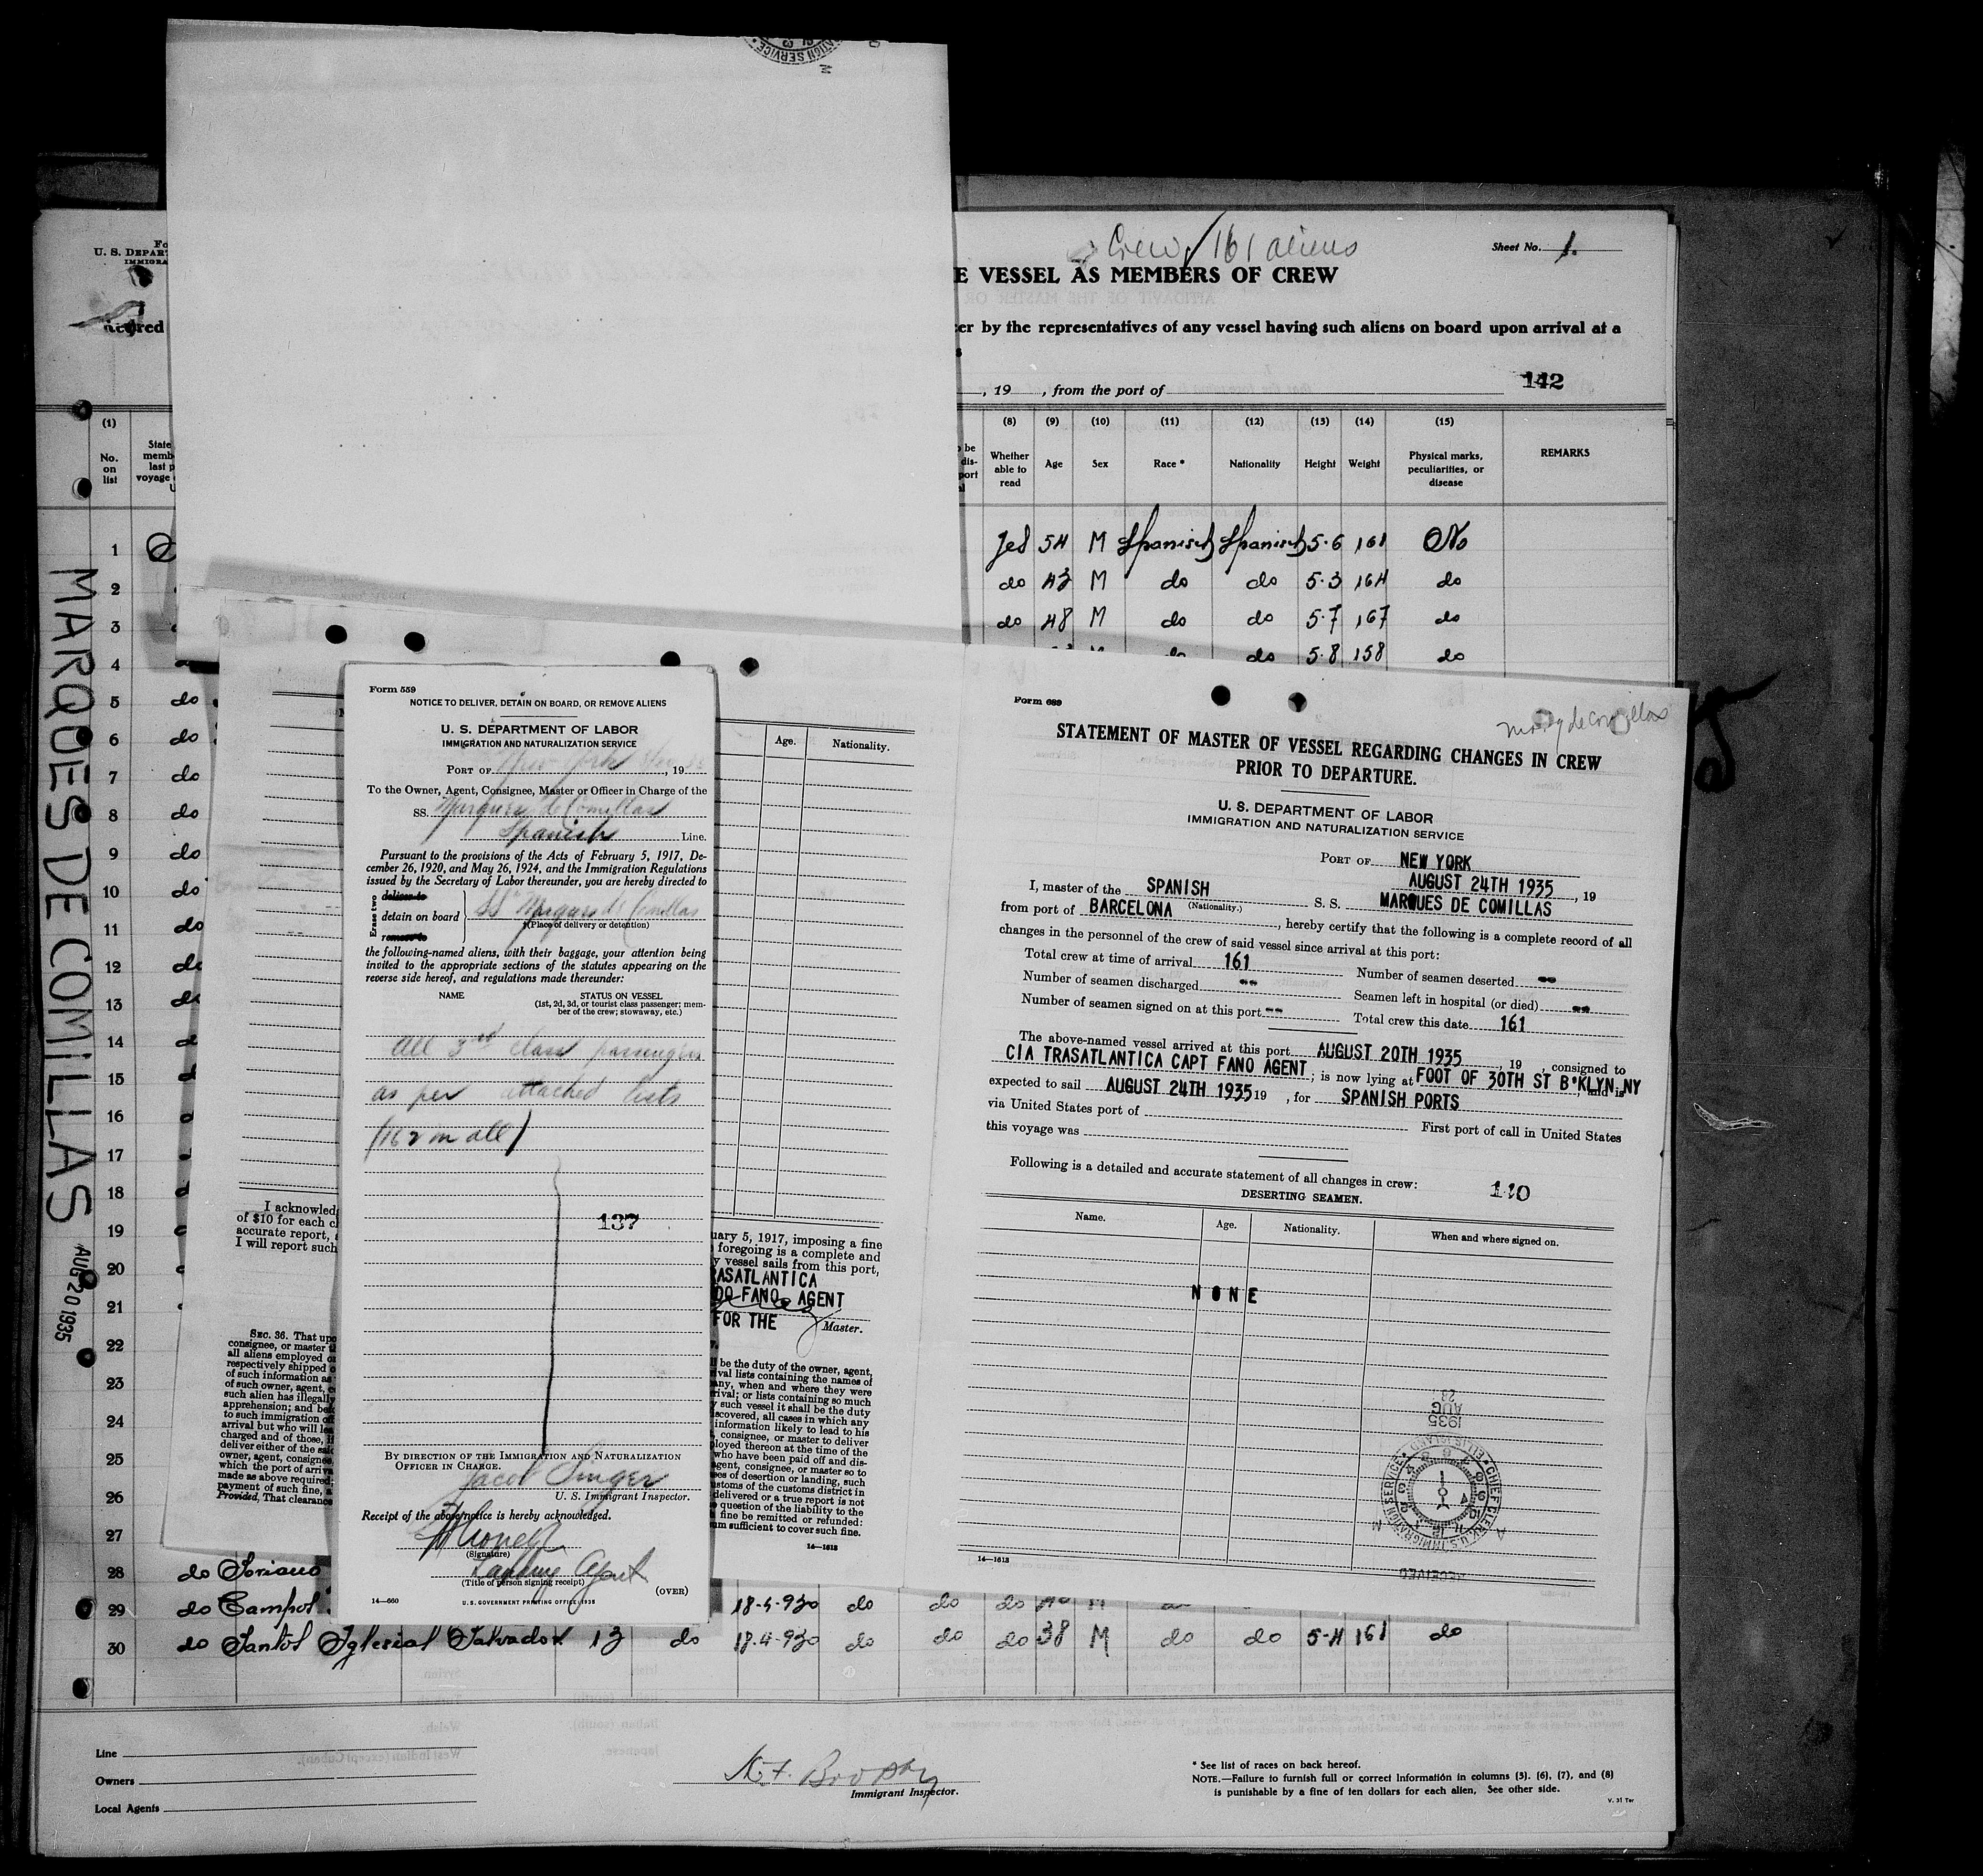 Crew 161 aliens
Sheet No. 1.
E VESSEL AS MEMBERS OF CREW
cer by the representatives of any vessel having such aliens on board upon arrival at a
, 19 , from the port of
142
U. S. DEPAR
IMMIGRA
(1)
No.
on
list
State
memb
last p
voyage
(8)
Whether
able to
read
(9)
Age
(10)
Sex
(11)
Race *
(12)
Nationality
(13)
Height
(14)
Weight
(15)
Physical marks,
peculiarities, or
disease
REMARKS
1 Yes 54 M Spanish Spanish 5-6 161 No
2 do 43 M do do 5-3 164 do
3 do 48 M do do 5-7 167 do
4 do 5-8 158 do
5 do
6 do
7 do
8 do
9 do
10 do
11 do
12 do
13 do
14
15
16
17
18
19
20
21
22
23
24
25
26
27
28 do Soriano
29 do Campos 18-4-930 do do do M
30 do Santos Iglesias Salvador 13 do 18-4-930 do do do 38 M do do 5-4 161 do
MARQUES DE COMILLAS
AUG 20 1935
Form 559
NOTICE TO DELIVER, DETAIN ON BOARD, OR REMOVE ALIENS
U. S. DEPARTMENT OF LABOR
IMMIGRATION AND NATURALIZATION SERVICE
PORT OF New York , 19
To the Owner, Agent, Consignee, Master or Officer in Charge of the
SS. Marques de Comillas
Spanish Line.
Pursuant to the provisions of the Acts of February 5, 1917, De-
cember 26, 1920, and May 26, 1924, and the Immigration Regulations
issued by the Secretary of Labor thereunder, you are hereby directed to
Erase two
deliver to
detain on board
remove to
SS Marques de Comillas
(Place of delivery or detention)
the following-named aliens, with their baggage, your attention being
invited to the appropriate sections of the statutes appearing on the
reverse side hereof, and regulations made thereunder:
NAME
STATUS ON VESSEL
(1st, 2d, 3d, or tourist class passenger; mem-
ber of the crew; stowaway, etc.)
All 3rd class passengers
as per attached lists
(162 in all)
137
BY DIRECTION OF THE IMMIGRATION AND NATURALIZATION
OFFICER IN CHARGE.
Jacob Singer
U. S. Immigrant Inspector.
Receipt of the above notice is hereby acknowledged.
(Signature)
Landing Agent
(Title of person signing receipt)
(OVER)
14—660
U. S. GOVERNMENT PRINTING OFFICE: 1935
Age.
Nationality.
I acknowled
of $10 for each
accurate report,
I will report such
SEC. 36. That upo
consignee, or master
all aliens employed o
respectively shipped
of such information as
of such owner, agent,
such alien has illegally
apprehension; and be
to such immigration
arrival but who will
charged and of those,
deliver either of the
owner, agent, consignee,
which the port of arriva
made as above required;
payment of such fine,
Provided, That clearance
uary 5, 1917, imposing a fine
foregoing is a complete and
y vessel sails from this port,
RASATLANTICA
DO FANO. AGENT
FOR THE
Master.
l be the duty of the owner, agent,
ival lists containing the names of
any, when and where they were
rival; or lists containing so much
y such vessel it shall be the duty
scovered, all cases in which any
information likely to lead to his
, consignee, or master to deliver
ployed thereon at the time of the
who have been paid off and dis-
agent, consignee, or master so to
es of desertion or landing, such
ustoms of the customs district in
delivered or a true report is not
question of the liability to the
fine be remitted or refunded:
um sufficient to cover such fine.
14—1613
Form 689
Marq de Comillas
STATEMENT OF MASTER OF VESSEL REGARDING CHANGES IN CREW
PRIOR TO DEPARTURE.
U. S. DEPARTMENT OF LABOR
IMMIGRATION AND NATURALIZATION SERVICE
PORT OF NEW YORK
AUGUST 24TH 1935 , 19
I, master of the SPANISH S. S. MARQUES DE COMILLAS
(Nationality.)
from port of BARCELONA , hereby certify that the following is a complete record of all
changes in the personnel of the crew of said vessel since arrival at this port:
Total crew at time of arrival 161
Number of seamen deserted --
Number of seamen discharged --
Seamen left in hospital (or died) --
Number of seamen signed on at this port --
Total crew this date 161
The above-named vessel arrived at this port AUGUST 20TH 1935 , 19 , consigned to
CIA TRASATLANTICA CAPT FANO AGENT ; is now lying at FOOT OF 30TH ST B'KLYN,NY , and is
expected to sail AUGUST 24TH 1935 19 , for SPANISH PORTS
via United States port of
First port of call in United States
this voyage was
Following is a detailed and accurate statement of all changes in crew:
110
DESERTING SEAMEN.
Name.
Age.
Nationality.
When and where signed on.
NONE
1935
AUG
23
CHIEF CLERK, U.S. IMMIGRATION SERVICE
ELLIS ISLAND
RECEIVED
14—1613
Line
Owners
Local Agents
Immigrant Inspector.
* See list of races on back hereof.
NOTE.—Failure to furnish full or correct information in columns (3), (6), (7), and (8)
is punishable by a fine of ten dollars for each alien. See other side.
V. 31 Ter